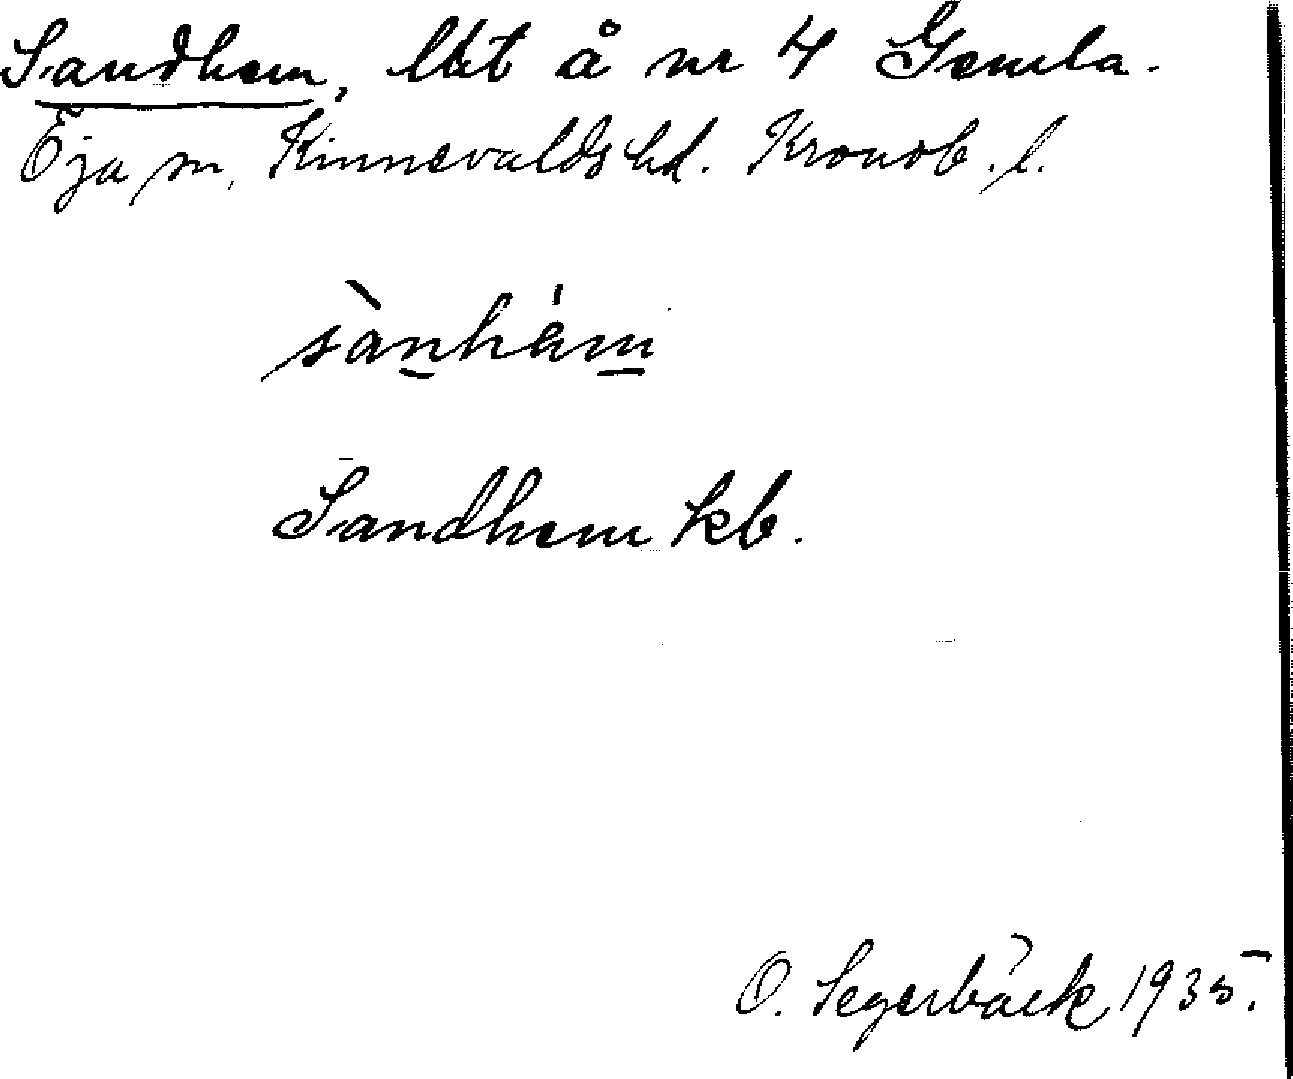 Sandhem, lht å nr 4 Gemla.
Öja sn, Kinnevalds hd. Kronob. l.
sànhám
Sandhem kb.
O. Segerbäck 1935.